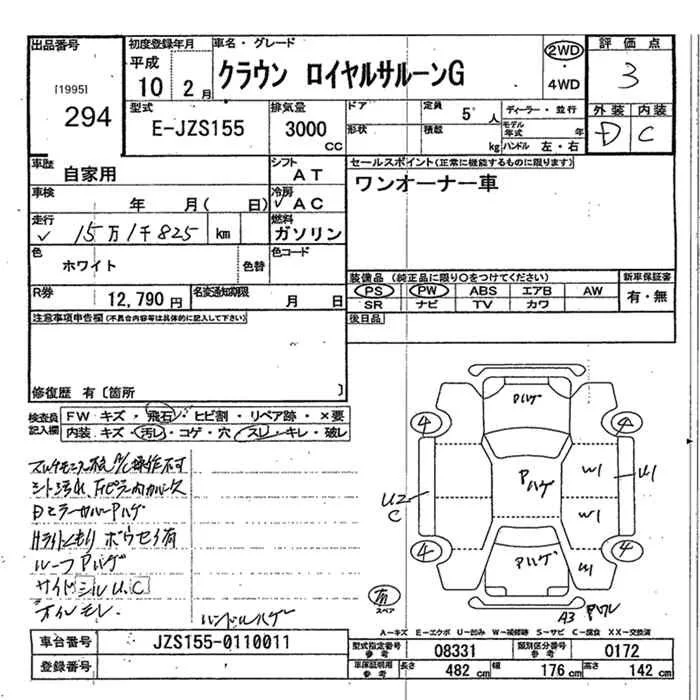 出品番号 初度登録年月 車名・グレード 2WD 評価点
平成
[1995] 10 2月 クラウン ロイヤルサルーンG ・ 3
294 4WD
型式 排気量 ドア 定員 5人 ディーラー・並行 外装 内装
E-JZS155 3000 CC 形状 積載 kg モデル年式 年 D C
ハンドル 左・右
車歴 自家用 シフト AT セールスポイント(正常に機能するものに限ります)
車検 年 月( 日) 冷房 ✓AC ワンオーナー車
走行 ✓ 15万1千825 km 燃料 ガソリン
色 ホワイト 色替 色コード
装備品(純正品に限り○をつけてください) 新車保証書
R券 12,790円 名変通知期限 月 日 PS PW ABS エアB AW 有・無
SR ナビ TV カワ
注意事項申告欄(不具合内容等は具体的に記入して下さい) 後日品
修復歴 有〔箇所 〕
検査員 FW キズ・飛石・ヒビ割・リペア跡・×要
記入欄 内装 キズ・汚レ・コゲ・穴・スレ・キレ・破レ
Pハゲ
4 4
操作不可
シート汚れ
U2 Pハゲ W1 U1
C W1
DミラーカバーPハゲ
Hライトくもり ボウセイ有
4 4
ルーフPハゲ Pハゲ
サイドシルU.C
有
スペア
オイルモレ ハンドルハゲ A3
A-キズ E-エクボ U-凹み W-補修跡 S-サビ C-腐食 XX-交換済
車台番号 JZS155-0110011 型式指定番号 参考 08331 類別区分番号 参考 0172
登録番号 車体証明用 参考 長さ 482cm 幅 176cm 高さ 142cm